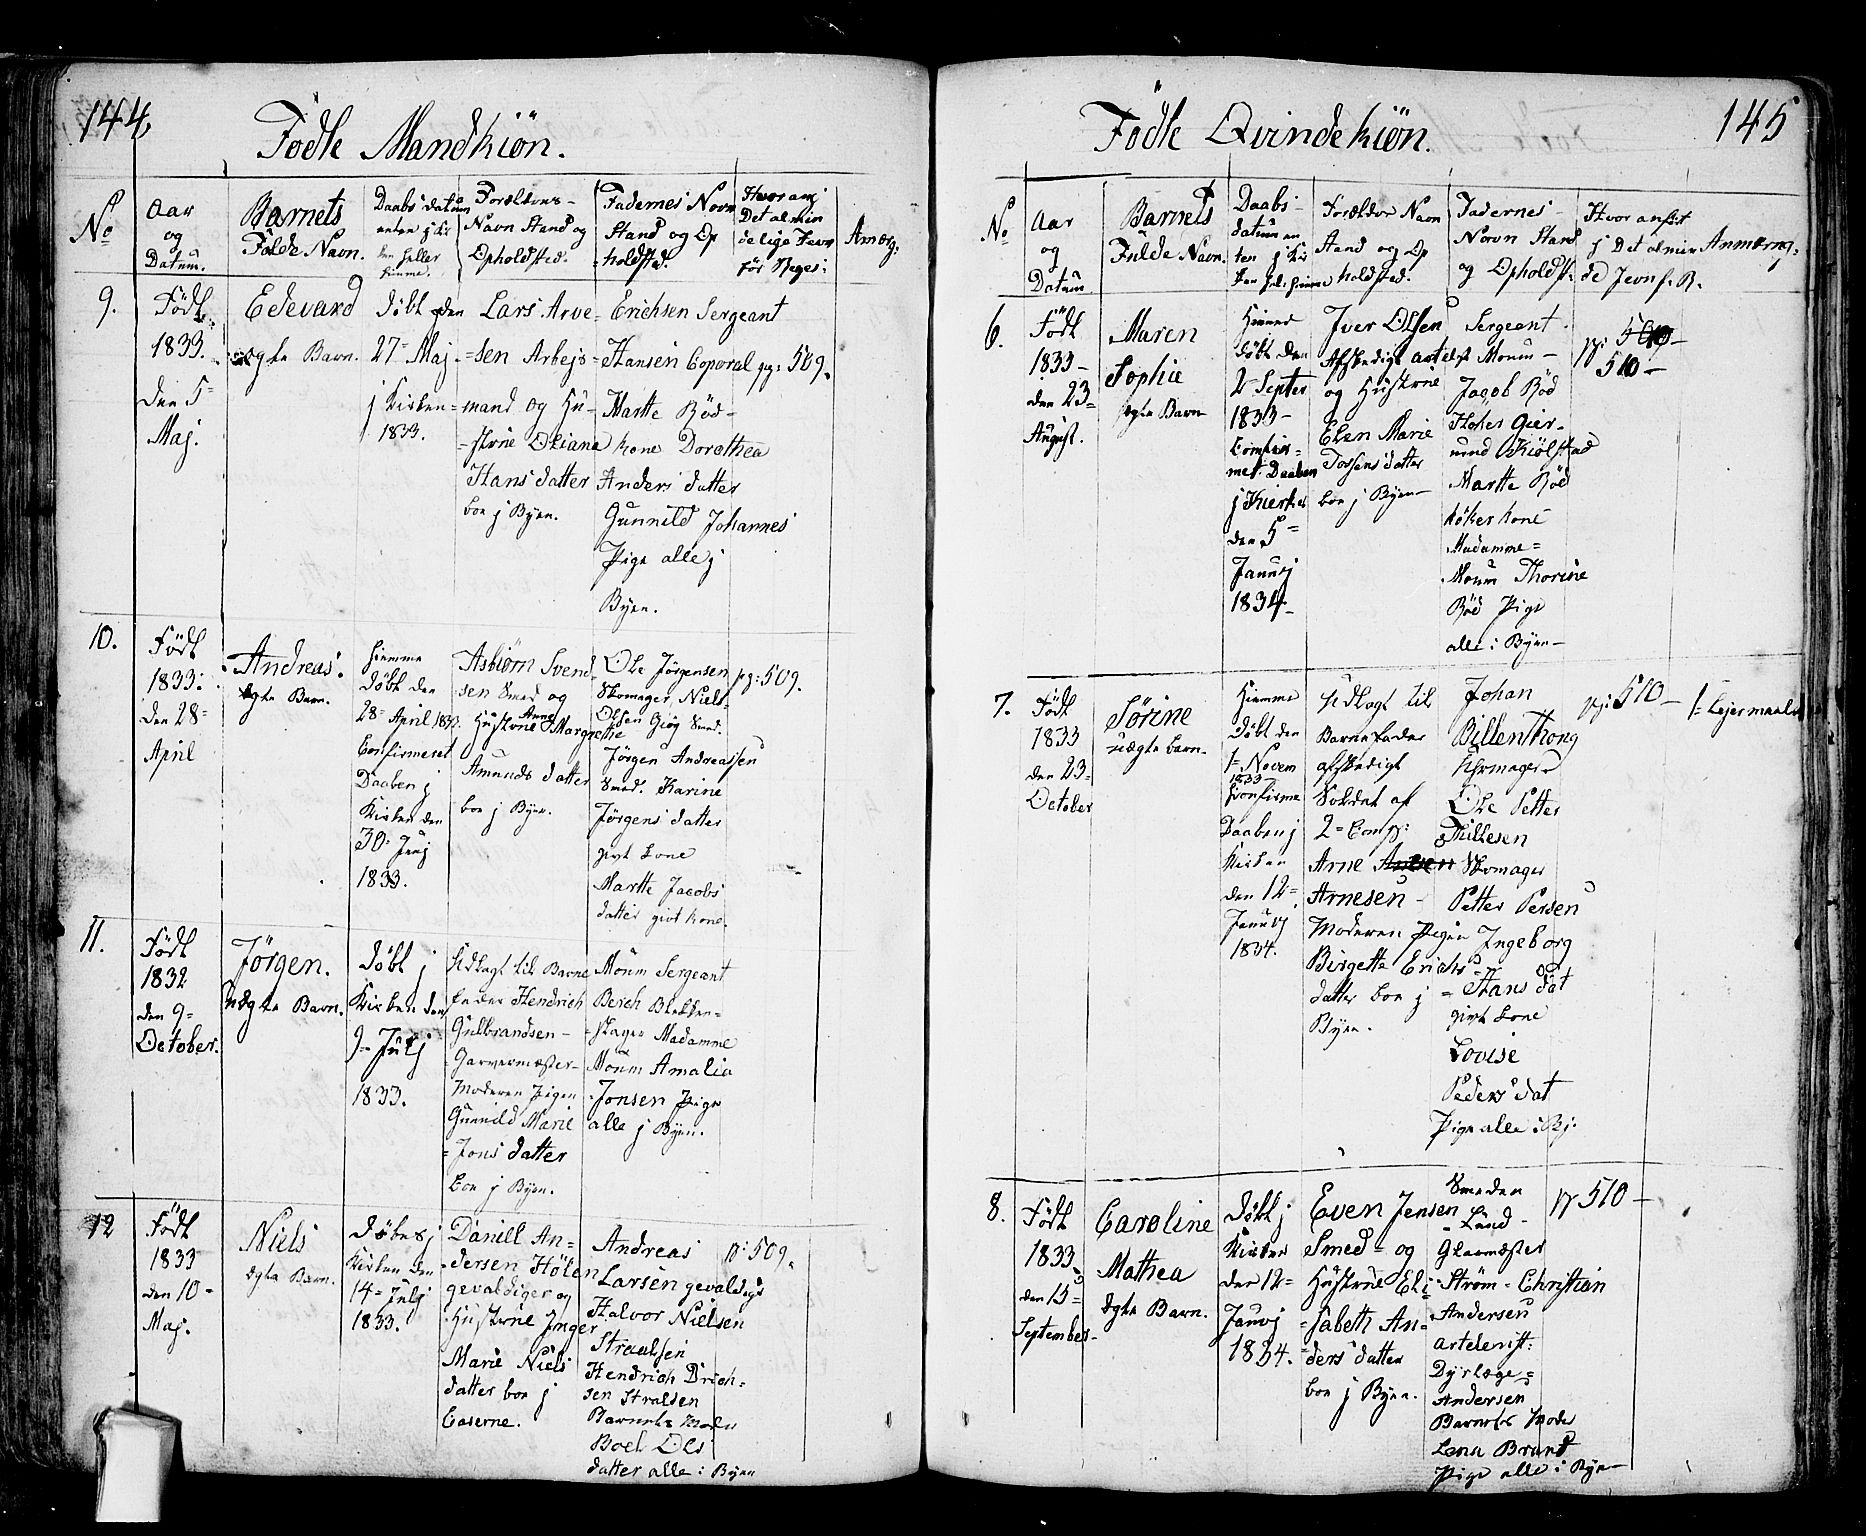 144
Födte Mandkiön.
No
Aar
og
Datum.
Barnets
Fulde Navn.
Daabs datum
enten j Kir
ken heller
hiemme.
Forældrens
Navn Stand og
Opholdsted.
Fadernes Navn
Stand og Op
holdsted.
Hvor anf
Det almin
delige Jevn
för Reges:
Anmærg:
9.
Födt
1833.
den 5=
Maj.
Edevard
ægte Barn.
döbt den
27= Maj
j Kirken=
1833.
Lars Arve=
=sen Arbejs=
mand og Hu-
=strue Oliane
Hans datter
boe j Byen.
Erichsen Sergeant
Hansen Coporal
Marthe Röd-
kone Dorothea
Anders datter
Gunnild Johannes
Pige alle j
Byen.
pg: 509.
10.
Födt
1833.
den 28=
April
Andreas.
ægte Barn.
hiemme
döbt den
28= April 1833.
Confirmeret
Daaben j
Kirken den
30= Junj
1833.
Asbiørn Svend
sen Smed og
Hustrue Anne Margrethe
Amunds datter
boe j Byen.
Ole Jörgensen
Skomager Niels
Olsen Giög Smed.
Jörgen Andreassen
Smed. Karine
Jörgens datter
givt kone
Marthe Jacobs
datter givt kone.
pg: 509.
11.
Födt
1832
den 9=
October.
Jörgen.
uægte Barn.
döbt j
Kirken den
9= Julj
1833.
Udlagt til Barne
fader Hendrich
Gulbrandsen-
Garvermæster-
Moderen Pigen
Gunnild Marie
=Jons datter
boe j Byen.
Moum Sergeant
Berch Blekken=
=slager Madamme
Moum Amalia
Jonsen Pige
alle j Byen.
12
Födt
1833
den 10=
Maj.
Niels
ægte Barn.
Döbe j
Kirken den
14= Julj
1833.
Daniel An=
=dersen Hölen
gevaldiger og
Hustrue Inger
Marie Niels
datter boe j
Caserne.
Andreas
Larsen gevaldiger
Halvor Nielsen
Straalsen
Hendrich Drich=
sen Stralsen
Barnets Moder
Boel Ols
datter alle i Byen
p: 509.
145
Födte Qvindekiön.
No
Aar
og
Datum
Barnets
Fulde Navn.
Daabs-
datum en
ten j Kir
ken hel: hiemme
Forældre Navn
Stand og Op
holdsted.
Fadernes-
Navn Stand
og Opholdst:
Hvor anfört
j Det almin
de Jevnf. R.
Anmærng:
6.
Födt
1833-
den 23=
August.
Maren
Sophie
ægte Barn
Hiemme
döbt den
2= Septer
1833-
Comfir=
met: Daaben
j Kierke
den 5=
Januarj
1834-
Iver Olsen
Afskediget artelist
og Hustrue
Elen Marie
Torsens datter
boe j Byen-
Sergeant
Moum-
Jacob Röd
Höker Gier-
mund Kiölstad
Marthe Röd
höker kone
Madamme=
Moum Thorine
Röd Pige
alle i Byen-
pg: 509-
510-
7.
Födt
1833
den 23=
October
Sörine
uægte barn-
Hiemme
döbt den
1= Novem
1833
Confirme
Daaben j
Kirken
den 12=
Januarj
1834.
Udlagt til
Barnefader
afskediget
Soldat af
2= Comp:
Arne
Arnesen-
Moderen Pigen
Birgette Erichs=
datter boe j
Byen.
Johan
Billenthong
Uhrmager
Ole Petter
Tillesen
Skomager
Petter Persen
Ingeborg
=Hans dat
givt kone
Lovise
Peders dat
Pige alle i By.
pg: 510-
1= Lejermaal
8.
Födt
1833
den 15=
September-
Caroline
Mathea
ægte Barn.
Döbt j
Kirken
den 12=
Januarj
1834.
Even Jensen
Smed- og
Hustrue Eli=
=sabeth An=
ders datter
boe j Byen.
Smeden
=Lund-
Glarmæster
Ström- Christian
Andersen
artelerist:
Dyrlæge=
Andersen
Barnets Moder
Lena Brand
Pige alle i Byen
p 510-